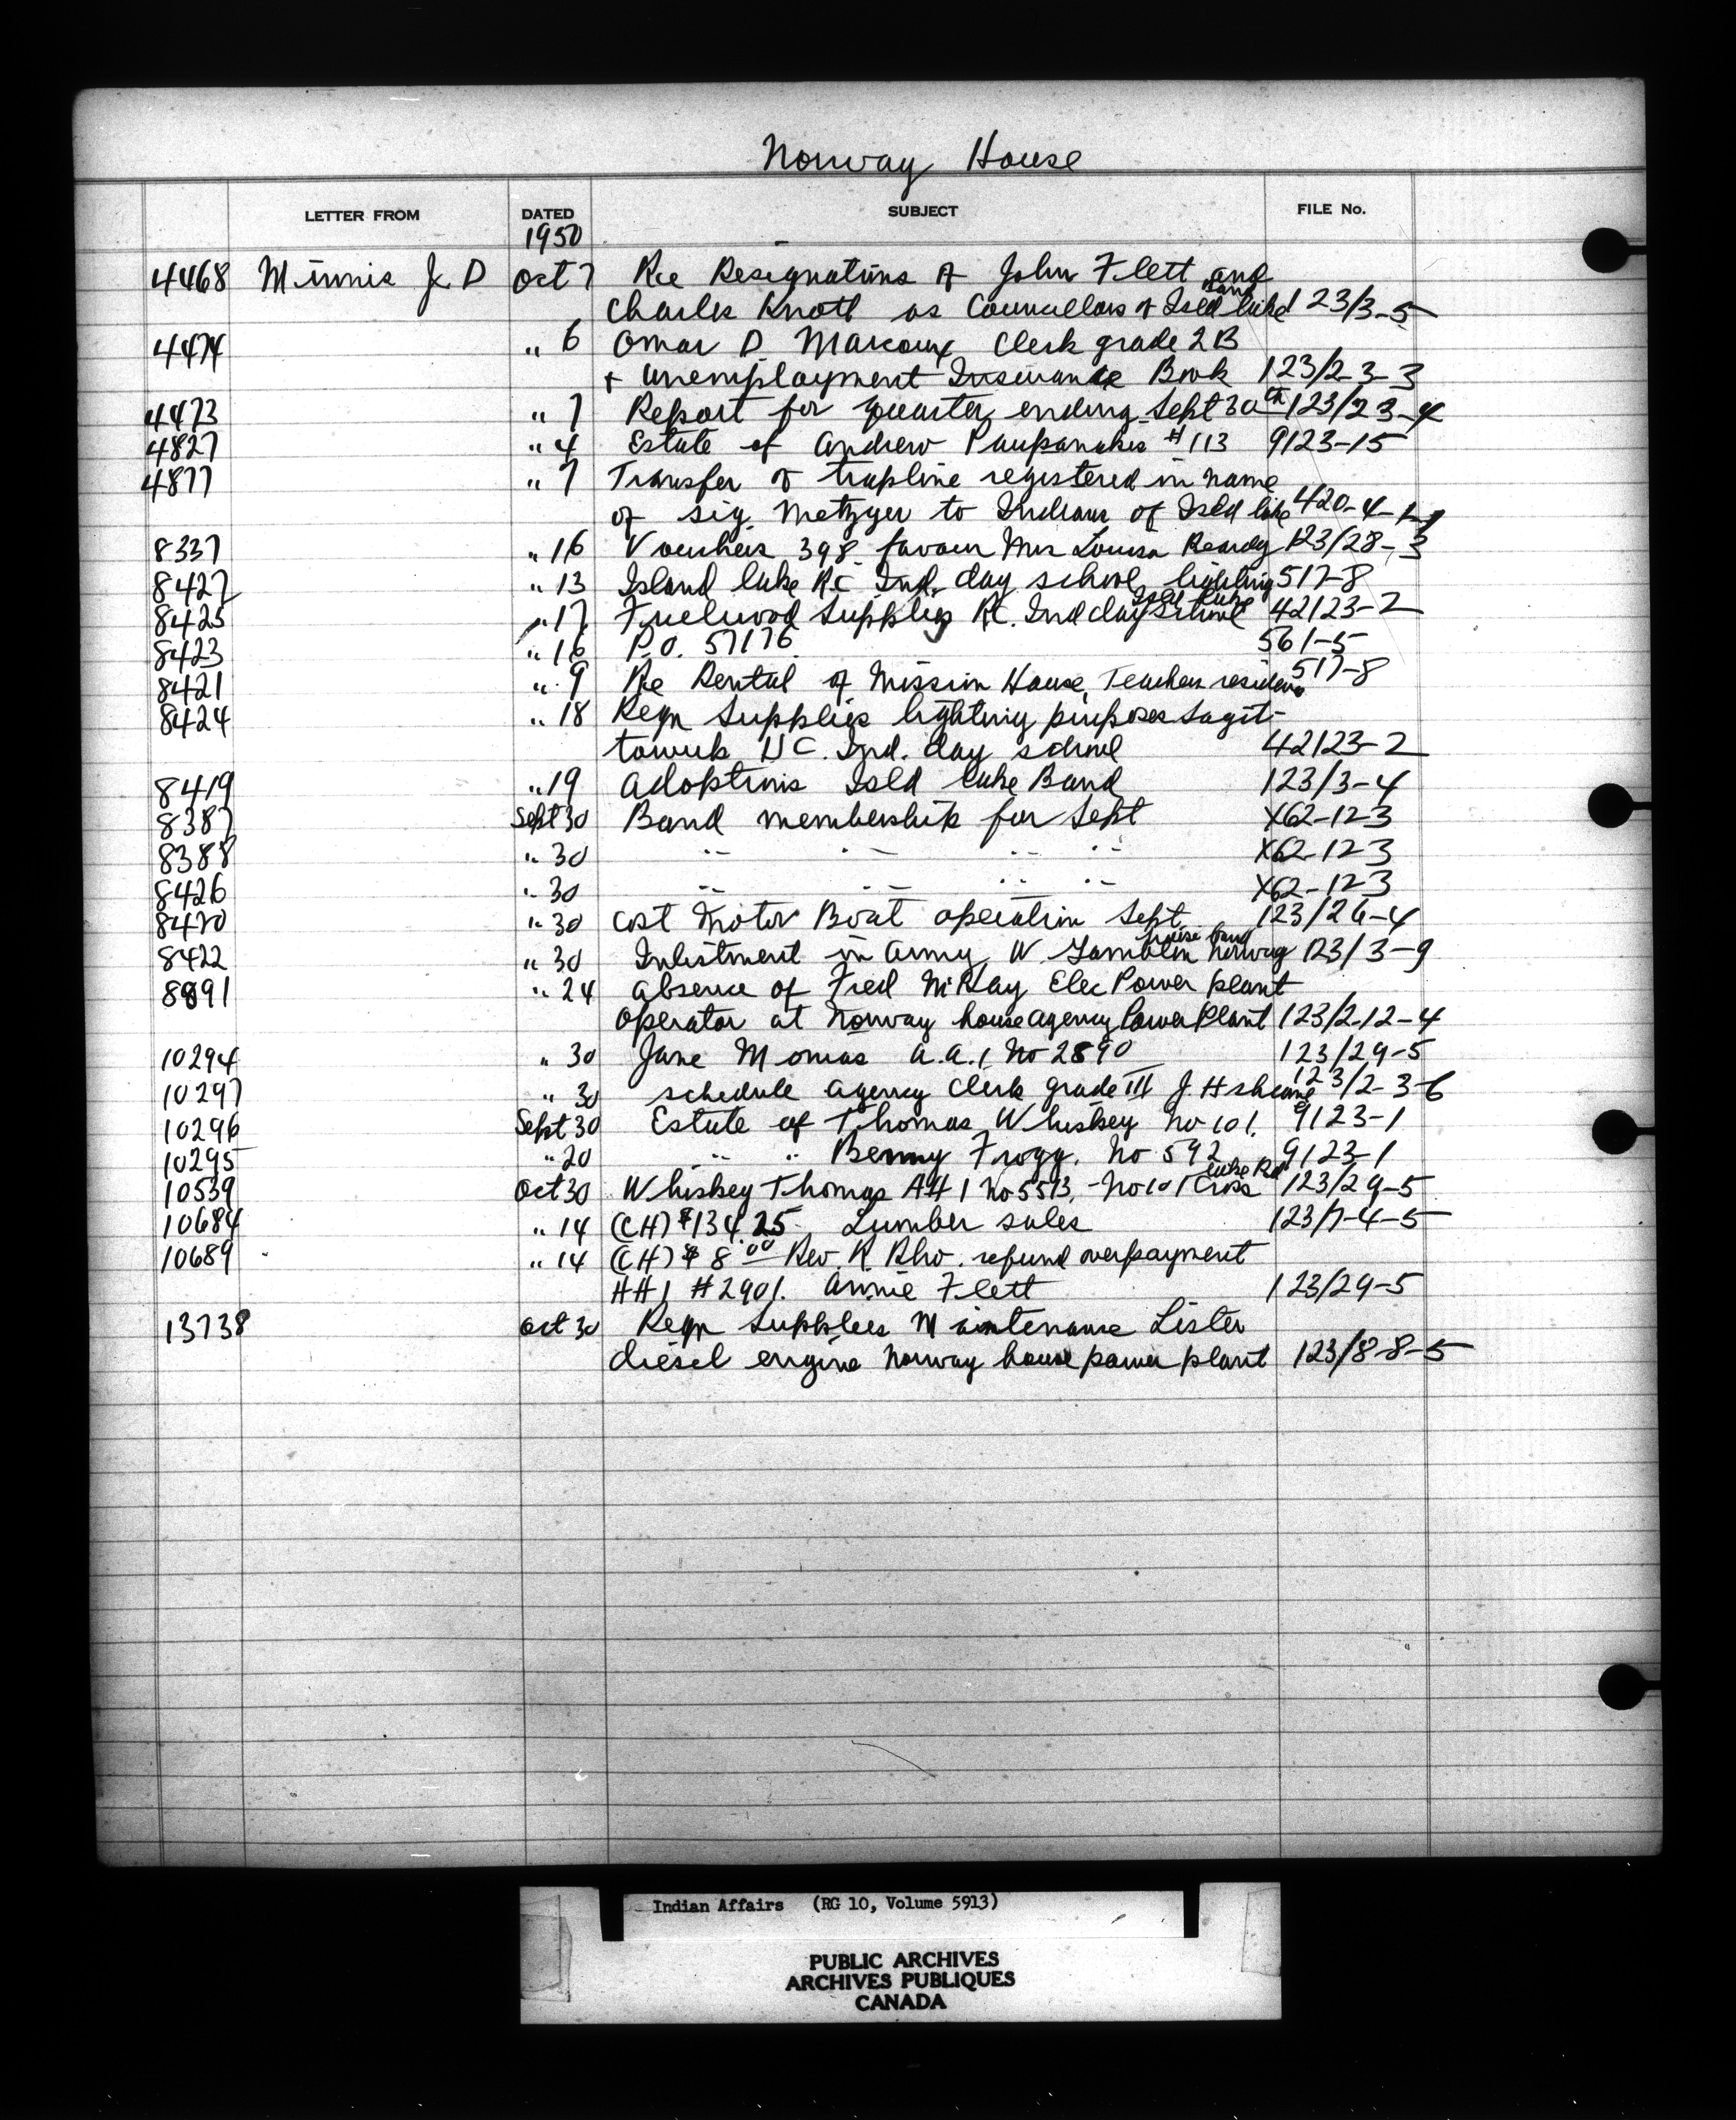 Norway House
LETTER FROM DATED SUBJECT FILE No.
1950
4468 Minnis J. D Oct 7 Re Resignations of John Flett and
Charles Knott as Councillors of Isld lake Band 123/3-5
4474 " 6 Omar D Marcoux Clerk grade 2B
+ Unemployment Insurance Book 123/2-3-3
4473 " 7 Report for quarter ending Sept 30th 123/23-4
4827 " 4 Estate of Andrew Paupanakis #113 9123-15
4877 " 7 Transfer of trapline registered in name
of Sig. Metzger to Indians of Isld lake 420-4-1-1
8337 " 16 Vouchers 398 favour Mrs Louisa 123/28-3
8427 " 13 Island lake RC Ind. day school, lighting 517-8
8425 " 17 Fuelwood Supplies RC. Ind day School Isld lake 42123-2
8423 " 16 P.O. 57176 561-5
8421 " 9 Re Rental of Mission House, Teachers residence 517-8
8424 " 18 Reqn Supplies lighting purposes Sagit-
tawuk UC. Ind. day school 42123-2
8419 " 19 Adoptions Isld lake Band 123/3-4
8387 Sept 30 Band membership for Sept X62-123
8388 " 30 " " " " X62-123
8426 " 30 " " " " X62-123
8420 " 30 Cost Motor Boat operation Sept 123/26-4
8422 " 30 Inlistment in Army W Tamblin Norway house band 123/3-9
8891 " 24 Absence of Fred McKay Elec Power plant
operator at Norway house agency Power Plant 123/2-12-4
10294 " 30 Jane Monias A.A.1 No 2890 123/29-5
10297 " 30 schedule agency Clerk grade III J. H 123/2-3-6
10296 Sept 30 Estate of Thomas Whiskey No 101. 9123-1
10295 " 20 " " Benny Frogg. No 592 9123-1
10539 Oct 30 Whiskey Thomas AH1 No 5513, - No 101 Cross lake Bd 123/29-5
10684 " 14 (CH) $134.25 Lumber sales 123/7-4-5
10689 " 14 (CH) $8.00 Rev. R. refund overpayment
HH1 #2901. Annie Flett 123/29-5
13738 Oct 30 Reqn Supplies Maintenance Lister
diesel engine Norway house power plant 123/8-8-5
Indian Affairs (RG 10, Volume 5913)
PUBLIC ARCHIVES
ARCHIVES PUBLIQUES
CANADA